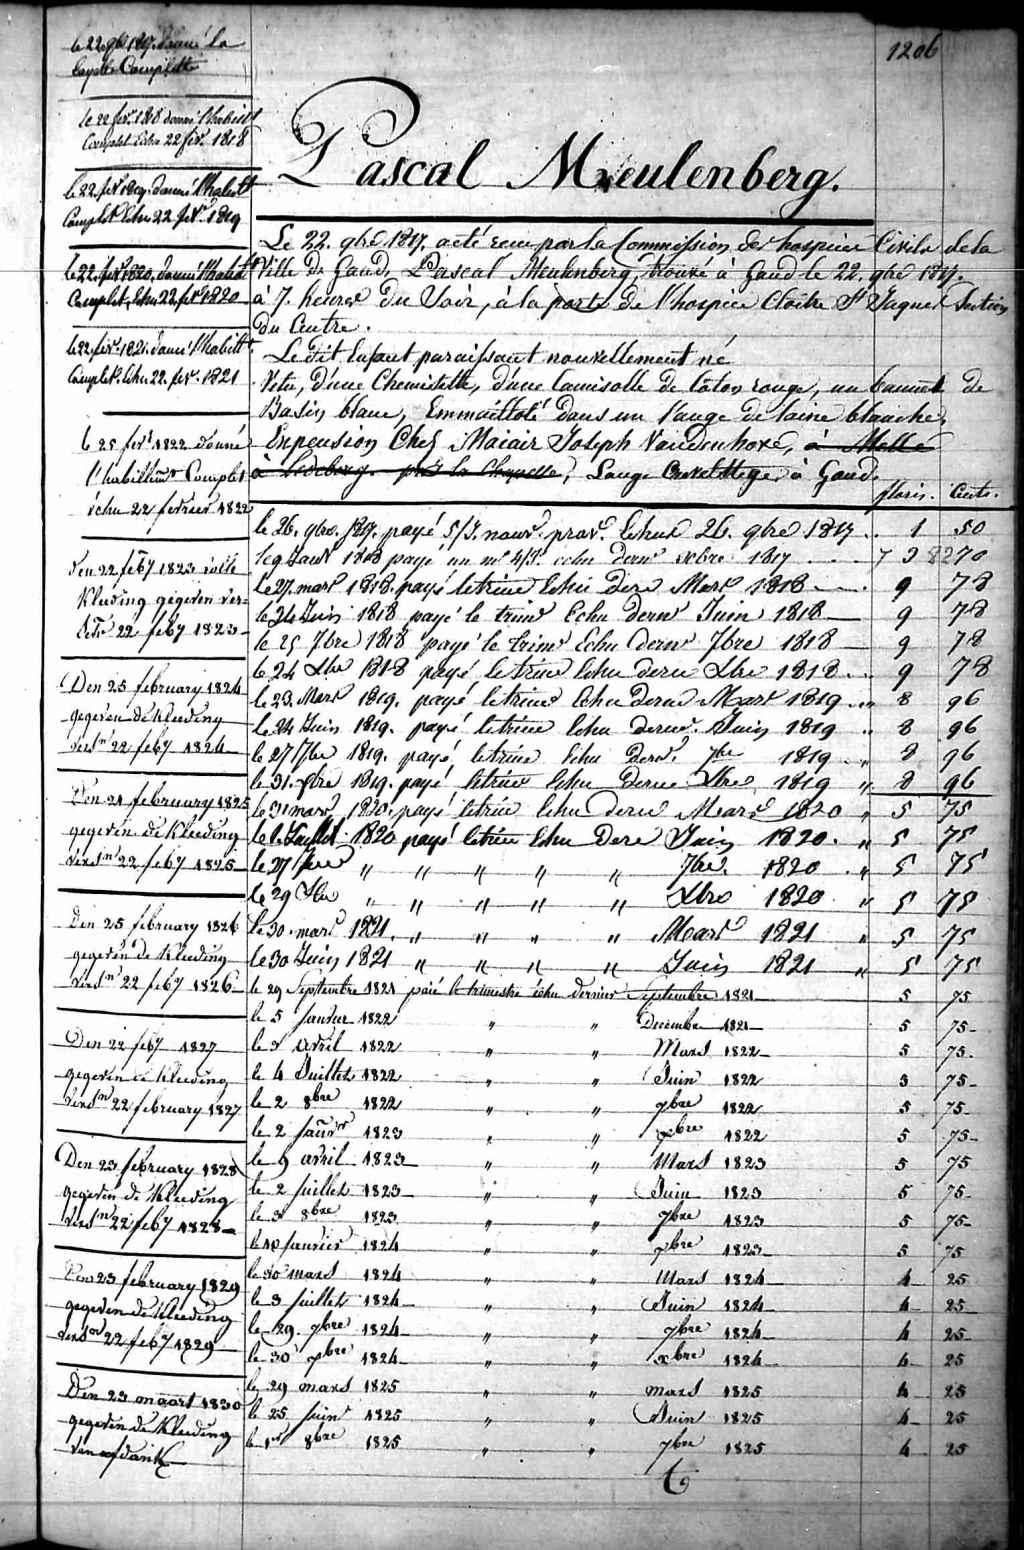 1206
le 22 9bre 1817. donné la
layette Complette
le 22 fevr. 1818 donné l'habillt
Complet Echu 22 fevr. 1818
le 22. fevr. 1819. donné l'habillt
Complet Echu 22 fevr. 1819
le 22. fevr. 1820. donné l'habillt
Complet, Echu 22 fevr 1820
le 22 fevr. 1821. donné l'habillt
Complet. Echu 22. fevr. 1821
le 25 fevr. 1822 donné
l'habillemt Complet
échu 22 fevrier 1822
Den 22 feby 1823
Kleeding gegeven ver-
22 feby 1823
Den 25 february 1824
gegeven de Kleeding
22 feby 1824
Den 21 february 1825
gegeven de Kleeding
22 feby 1825
Den 25 february 1826
gegeven de Kleeding
22 feby 1826
Den 22 feby 1827
gegeven de Kleeding
22 february 1827
Den 23 february 1828
gegeven de Kleeding
22 feby 1828
Den 23 february 1829
gegeven de Kleeding
22 feby 1829
Den 23 maart 1830
gegeven de Kleeding
Pascal Meulenberg.
Le 22. 9bre 1817. a été recu par la Commission des hospices Civils de la
Ville de Gand, Pascal Meulenberg, trouvé à Gand le 22. 9bre 1817.
à 7. heures du Soir, à la porte de l'hospice Cloitre St Jaques Section
du Centre.
Le dit Enfant paraissant nouvellement né
Vetu, d'une Chemisette, d'une Camisolle de Coton rouge, un bonnet de
Basin blanc, Emmailloté dans un lange de laine blanche,
En pension Chez Joseph Vandenhove, à Melle
à Ledeberg. près la Chapelle, à Gand.
florins. Cents.
le 26. 9bre. 1817. payé nour. prov. Echu 26. 9bre 1817 1 50
payé echu dern xbre 1817 70
Le 27. mars 1818. payé le trim Echu dern Mars 1818 9 78
le 24 Juin 1818 payé le trim Echu dern Juin 1818 9 78
le 25 7bre 1818 payé le trim Echu dern 7bre 1818 9 78
le 24 Xbre 1818 payé le trim Echu dern Xbre 1818 9 78
le 23. Mars 1819. payé le trim Echu dern Mars 1819 " 8 96
le 24 Juin 1819. payé le trim Echu dern. Juin 1819 " 8 96
le 27 7bre 1819. payé le trim Echu dern. 7bre 1819 " 8 96
le 31. Xbre 1819. payé le trim Echu dern Xbre 1819 " 8 96
le 31 mars 1820. payé le trim Echu dern Mars 1820 " 5 75
le 1. Juillet 1820 payé le trim Echu Dern Juin 1820. " 5 75
le 27 7bre " " " " " 7bre. 1820 " 5 75
le 29 Xbre " " " " " Xbre 1820 " 5 75
le 30. mars 1821. " " " " Mars 1821 " 5 75
le 30 Juin 1821 " " " " Juin 1821 " 5 75
le 29 Septembre 1821 paié le trimestre échu dernier Septembre 1821 5 75
le 5 Janvier 1822 " " Decembre 1821 5 75
le avril 1822 " " Mars 1822 5 75
le 4 Juillet 1822 " " Juin 1822 5 75
le 2 8bre 1822 " " 7bre 1822 5 75
le 2 janvr 1823 " " xbre 1822 5 75
le 9 avril 1823 " " Mars 1823 5 75
le 2 juillet 1823 " " Juin 1823 5 75
le 3 8bre 1823 " " 7bre 1823 5 75
le 10 janvier 1824 " " xbre 1823 5 75
le 30 mars 1824 " " Mars 1824 4 25
le 3 juillet 1824 " " Juin 1824 4 25
le 29. 7bre 1824 " " 7bre 1824 4 25
le 30 xbre 1824 " " xbre 1824 4 25
le 29 mars 1825 " " mars 1825 4 25
le 25 juin 1825 " " Juin 1825 4 25
le 1er 8bre 1825 " " 7bre 1825 4 25